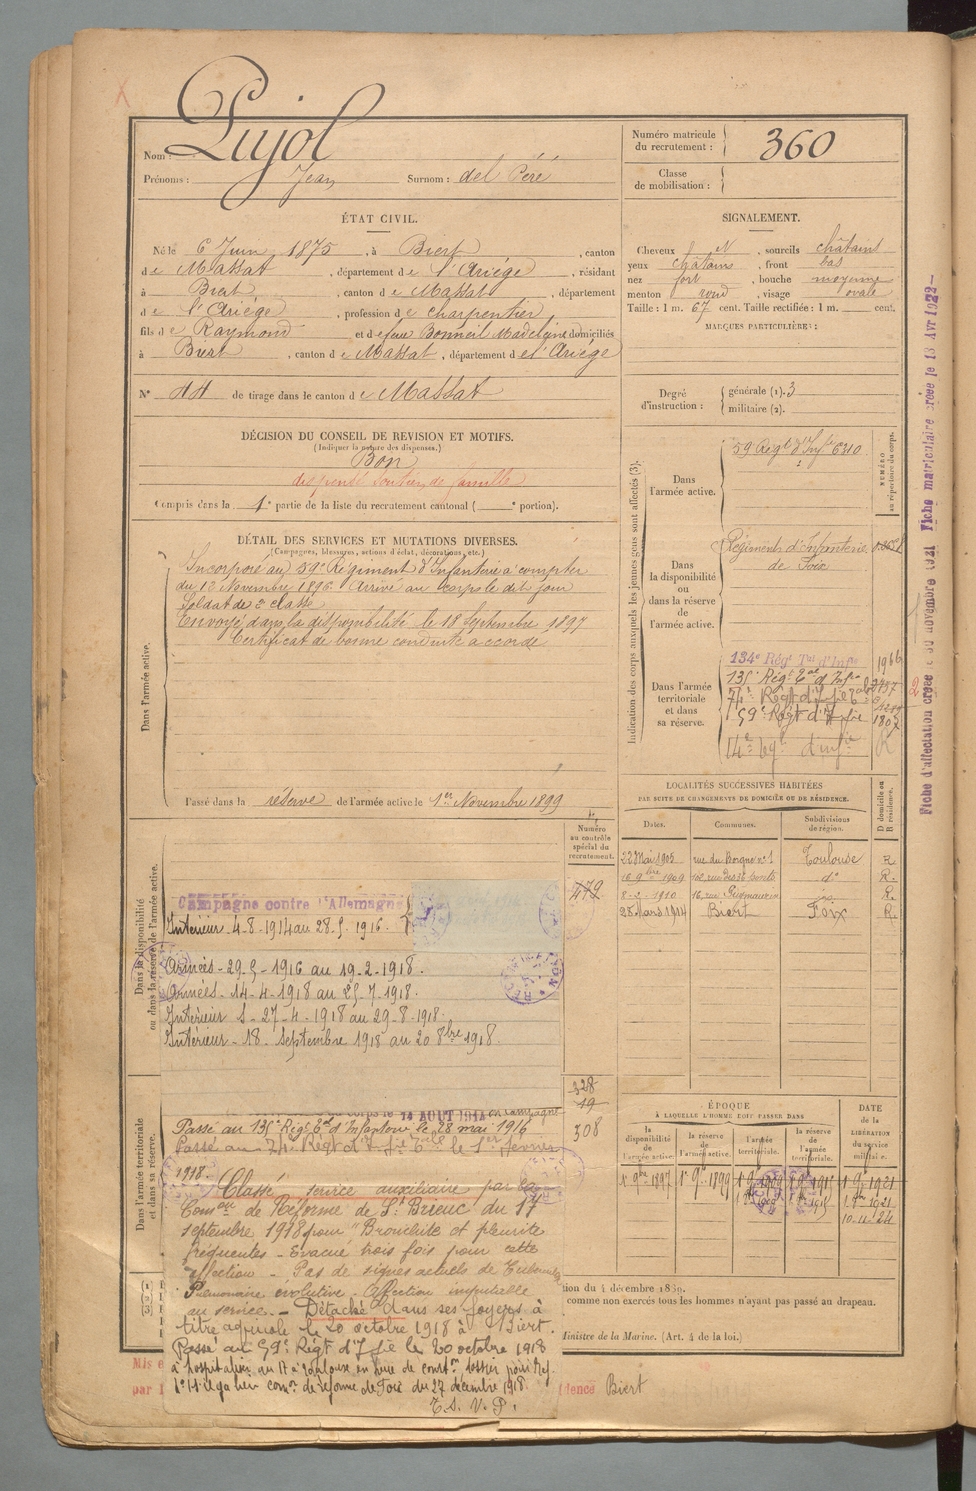 Nom : Pujol
Prénoms : Jean Surnom : del Péré
Numéro matricule du recrutement : 360
Classe de mobilisation :
ÉTAT CIVIL.
Né le 6 Juin 1875, à Biert, canton
de Massat, département de l'Ariége, résidant
à Biert, canton de Massat, département
de l'Ariége, profession de charpentier
fils de Raymond et de feue Bonneil Madeleine domiciliés
à Biert, canton de Massat, département de l'Ariége
N° 44 de tirage dans le canton de Massat
SIGNALEMENT.
Cheveux et N, sourcils châtains
yeux châtains, front bas
nez fort, bouche moyenne
menton rond, visage ovale
Taille : 1 m. 67 cent. Taille rectifiée : 1 m. cent.
MARQUES PARTICULIÈRES :
Degré d'instruction : générale (1). 3
militaire (2).
DÉCISION DU CONSEIL DE REVISION ET MOTIFS.
(Indiquer la nature des dispenses.)
Bon
dispensé soutien de famille
Compris dans la 1e partie de la liste du recrutement cantonal ( e portion).
DÉTAIL DES SERVICES ET MUTATIONS DIVERSES.
(Campagnes, blessures, actions d'éclat, décorations, etc.)
Dans l'armée active.
Incorporé au 59e Régiment d'Infanterie à compter
du 12 Novembre 1896. Arrivé au corps le dit jour
Soldat de 2e classe
Envoyé dans la disponibilité le 18 Septembre 1897
Certificat de bonne conduite accordé
Passé dans la réserve de l'armée active le 1er Novembre 1899
Indication des corps auxquels les jeunes gens sont affectés (3).
NUMÉRO au répertoire du corps.
Dans l'armée active.
59e Régt d'Infie 6310
Dans la disponibilité ou dans la réserve de l'armée active.
Régiments d'Infanterie
de Foix
Dans l'armée territoriale et dans sa réserve.
134e Régt Tal d'Infie 1966
135e Régt Eal d'Infie
74e Régt d'Infie Eale
59e Régt d'Infie 1807
14e Régt d'infie R
LOCALITÉS SUCCESSIVES HABITÉES
PAR SUITE DE CHANGEMENTS DE DOMICILE OU DE RÉSIDENCE.
D domicile ou R résidence.
Dates. Communes. Subdivisions de région.
22 Mai 1905 rue du Borgne n° 1 Toulouse R.
16 9bre 1909 do R.
8-2-1910 R.
28 Mars 1914 Biert Foix R.
Numéro au contrôle spécial du recrutement.
472
Dans la disponibilité ou dans la réserve de l'armée active.
Campagne contre l'Allemagne
Intérieur 4-8-1914 au 28-5-1916.
Armées - 29-5-1916 au 19-2-1918.
Armées - 14-4-1918 au 25-7-1918.
Intérieur S - 27-4-1918 au 29-8-1918.
Intérieur - 18 Septembre 1918 au 20 8bre 1918.
328
19
308
Dans l'armée territoriale et dans sa réserve.
corps le 14 AOUT 1914 en campagne
Passé au 135e Régt Eal d'Infanterie le 28 mai 1916
Passé au 74e Régt d'Infie Eale le 1er février
1918.
Classé service auxiliaire par la
Comon de Réforme de St Brieuc du 17
septembre 1918 pour "Bronchite et pleurite
fréquentes - Evacué trois fois pour cette
affection - Pas de signes actuels de Tuberculose
Pulmonaire évolutive - Affection imputable
au service. - Détaché dans ses foyers à
titre agricole le 20 octobre 1918 à Biert.
Passé au 59e Régt d'Infie le 20 octobre 1918
comon de réforme de Foix du 27 décembre 1918.
T. S. V. P.
ÉPOQUE
À LAQUELLE L'HOMME DOIT PASSER DANS
la disponibilité de l'armée active. la réserve de l'armée active. l'armée territoriale. la réserve de l'armée territoriale.
DATE de la LIBÉRATION du service militaire.
1er 9bre 1897 1er 9bre 1899
10-11-24
tion du 4 décembre 1889.
comme non exercés tous les hommes n'ayant pas passé au drapeau.
Ministre de la Marine. (Art. 4 de la loi.)
Mis e
par l
dence Biert
Fiche d'affectation créée le 30 novembre 1921 Fiche matriculaire créée le 13 Avr 1922